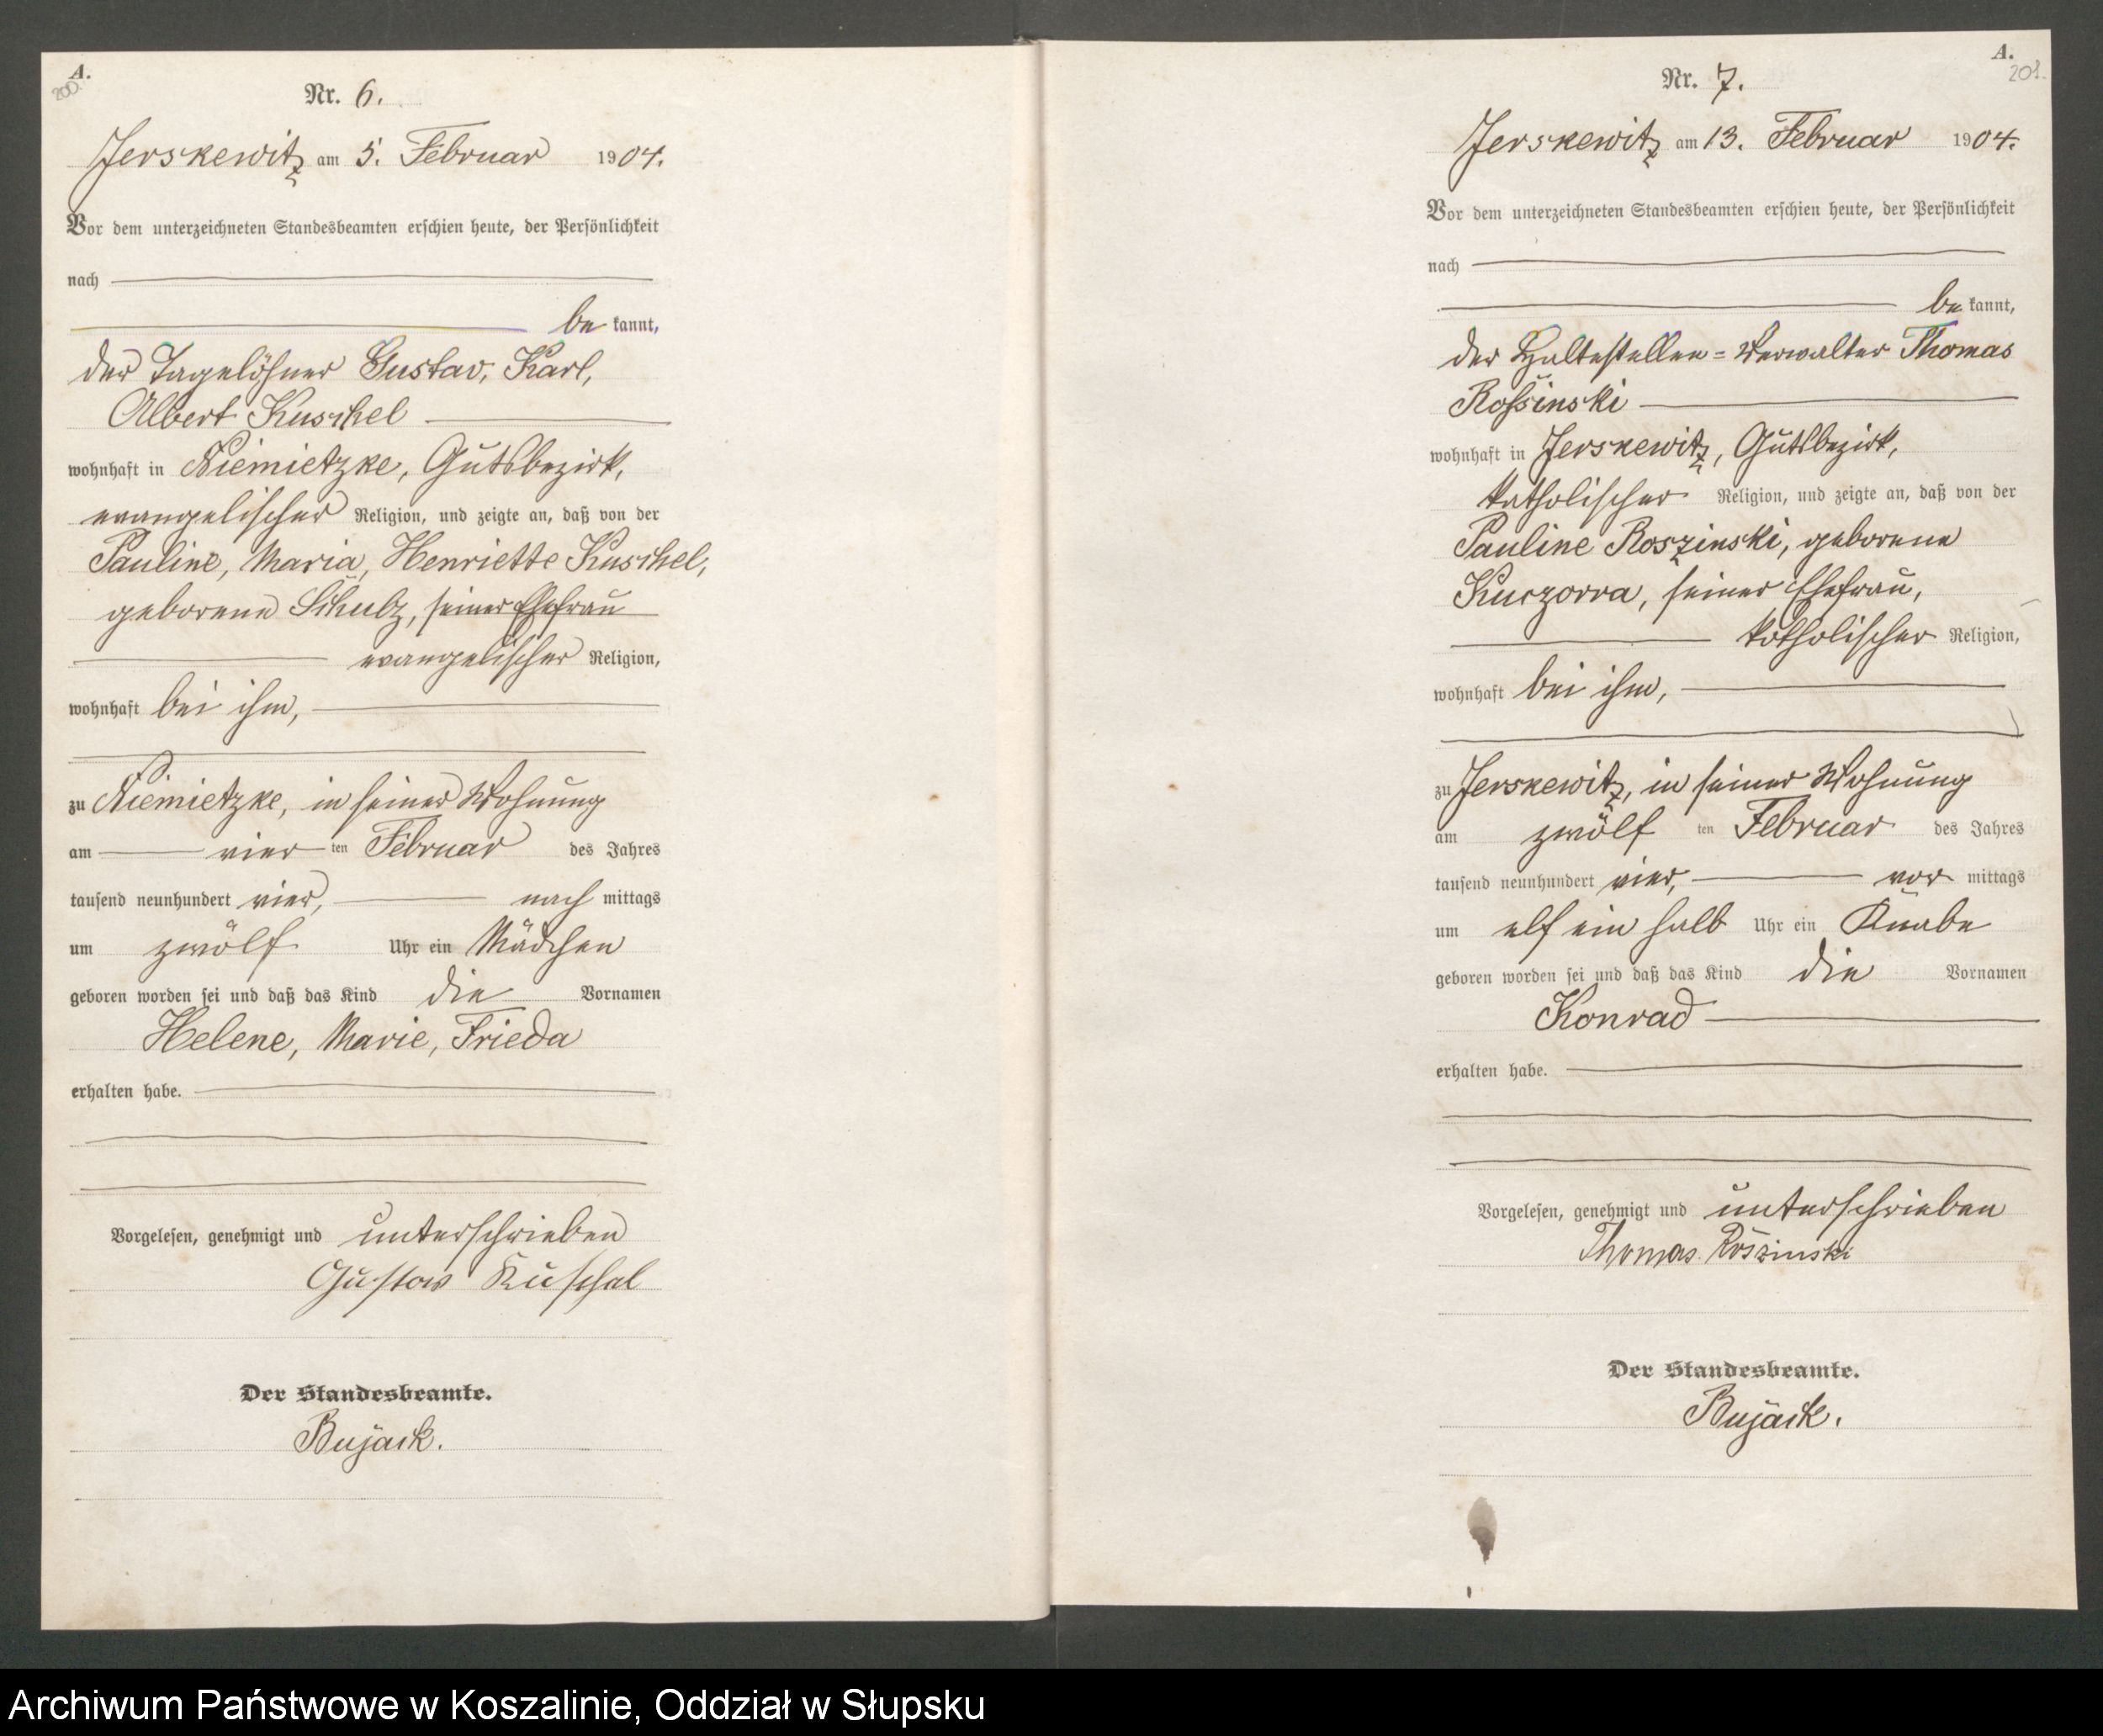 A.
200.
Nr. 6.
Jerskewitz am 5. Februar 1904.
Vor dem unterzeichneten Standesbeamten erschien heute, der Persönlichkeit
nach
be kannt,
der Tagelöhner Gustav, Karl,
Albert Kuschel
wohnhaft in Niemietzke, Gutsbezirk,
evangelischer Religion, und zeigte an, daß von der
Pauline, Maria, Henriette Kuschel,
geborene Schulz, seiner Ehefrau
evangelischer Religion,
wohnhaft bei ihm,
zu Niemietzke, in seiner Wohnung
am vier ten Februar des Jahres
tausend neunhundert vier, nach mittags
um zwölf Uhr ein Mädchen
geboren worden sei und daß das Kind die Vornamen
Helene, Marie, Frieda
erhalten habe.
Vorgelesen, genehmigt und unterschrieben
Gustav Kuschel
Der Standesbeamte.
Bujack.
A.
201.
Nr. 7.
Jerskewitz am 13. Februar 1904.
Vor dem unterzeichneten Standesbeamten erschien heute, der Persönlichkeit
nach
be kannt,
der Haltestellen=Verwalter Thomas
Roßinski
wohnhaft in Jerskewitz, Gutsbezirk,
katholischer Religion, und zeigte an, daß von der
Pauline Roszinski, geborene
Kuczorra, seiner Ehefrau,
katholischer Religion,
wohnhaft bei ihm,
zu Jerskewitz, in seiner Wohnung
am zwölf ten Februar des Jahres
tausend neunhundert vier, vor mittags
um elf ein halb Uhr ein Knabe
geboren worden sei und daß das Kind die Vornamen
Konrad
erhalten habe.
Vorgelesen, genehmigt und unterschrieben
Thomas Roszinski
Der Standesbeamte.
Bujack.
Archiwum Państwowe w Koszalinie, Oddział w Słupsku